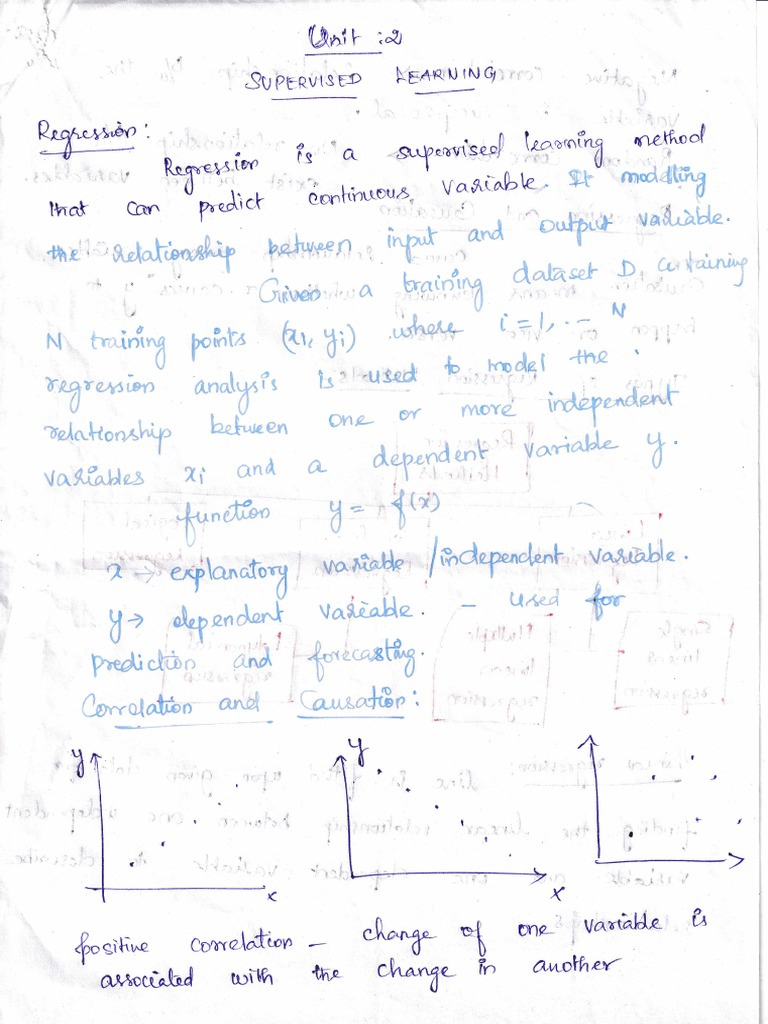 Unit :2
SUPERVISED LEARNING
Regression:
Regression is a supervised learning method
that can predict continuous variable. It modelling
the relationship between input and output variable.
Given a training dataset D containing
N training points (xi, yi) where i=1, .- N
regression analysis is used to model the
relationship between one or more independent
variables xi and a dependent variable y.
function y = f(x)
x → explanatory variable /independent variable.
y → dependent variable. - used for
prediction and forecasting.
Correlation and Causation:
y y
x x
positive correlation - change of one variable is
associated with the change in another